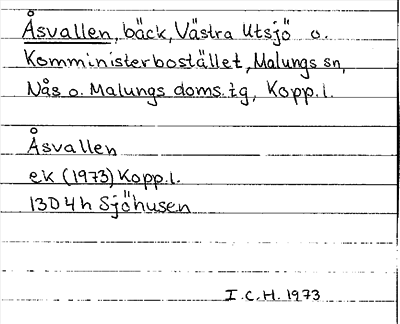 Åsvallen, bäck, Västra Utsjö o.
Komministerbostället, Malungs sn,
Nås o. Malungs doms.tg, Kopp.l.
Åsvallen
ek (1973) Kopp.l.
13D4h Sjöhusen
I.C.H. 1973